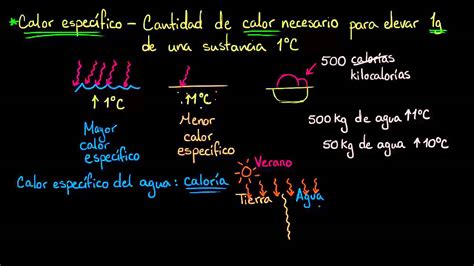 *Calor específico - Cantidad de calor necesario para elevar 1g
de una sustancia 1°C
↑1°C
Mayor
calor
específico
↑1°C
Menor
calor
específico
500 calorías
kilocalorías
500 kg de agua ↑1°C
50 kg de agua ↑10°C
Calor específico del agua: caloría
Verano
Tierra
Agua